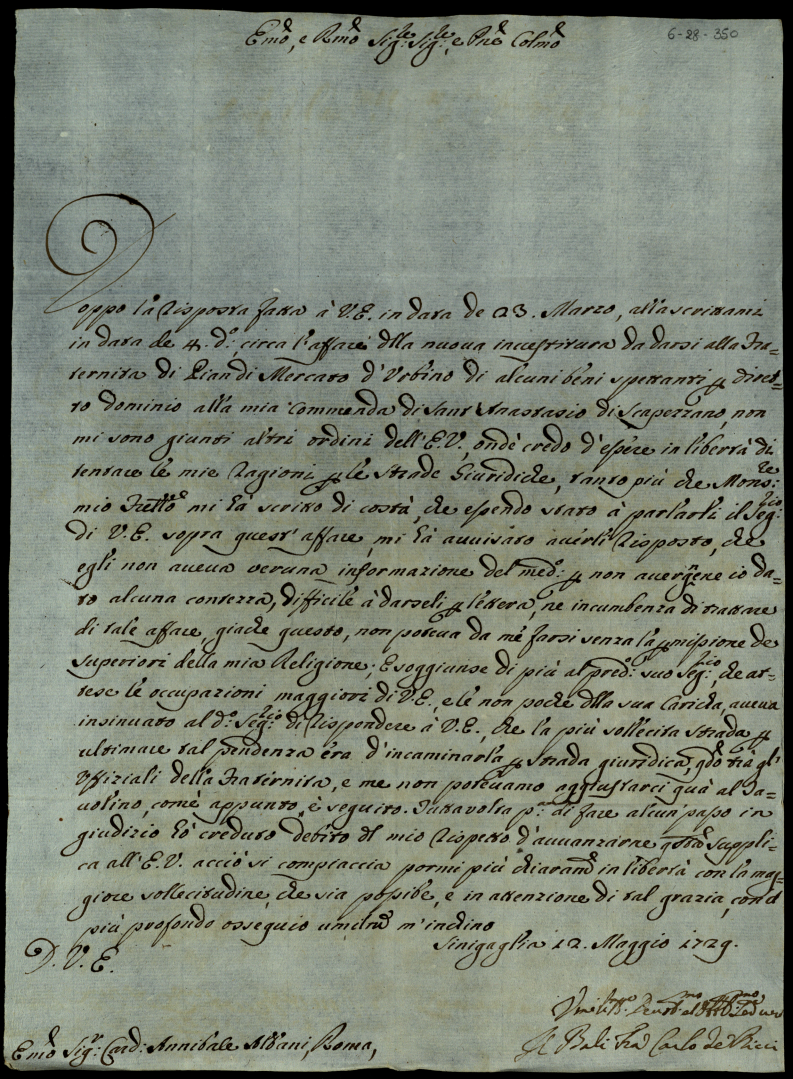 Emo, e Rmo Sig:re Sig:re, e Pne Colmo
6-28-350
Doppo la risposta fatta à V.E. in data de 23. Marzo, alla scrittami
in data de 4. do, circa l'affare dlla nuova investitura da darsi alla Fra-
ternita di Pian di Mercato d'Urbino di alcuni beni spettanti p diret-
to dominio alla mia Commenda di Sant Anastasio di Scapezzano, non
mi sono giunti altri ordini dell'E.V., onde credo d'essere in libertà di
tentare le mie ragioni p le strade Giuridiche, tanto più che Mons:re
mio Frello mi hà scritto di costà, che essendo stato à parlarli il Seg:rio
di V.E. sopra quest'affare, mi hà avvisato averli risposto, che
egli non aveva veruna informazione del medo: p non avergene io da-
to alcuna contezza, difficile à darseli p lettera, ne incumbenza di trattare
di tale affare, giache questo, non poteva da mè farsi senza la pmissione de
Superiori della mia Religione; E soggiunse di più al pred: suo Seg:rio, che at-
tese le occupazioni maggiori di V.E., e le non poche dlla sua Carica, aveva
insinuato al do: Seg:rio di rispondere à V.E., che la più sollecita strada p
ultimare tal pendenza èra d'incaminarla p strada giuridica, qdo trà gl'
Uffiziali della Fraternita, e me non potevamo aggiustarci quà al Ta-
volino, come appunto è seguito. Tuttavolta pa di fare alcun passo in
giudizio hò creduto debito dl mio rispetto d'avvanzarne qsta suppli-
ca all'E.V. acciò si compiaccia pormi più chiaramte in libertà con la mag-
giore sollecitudine, che sia possibe, e in attenzione di tal grazia, con il
più profondo osseguio umilmte m'inchino
Sinigaglia 12. Maggio 1729.
D. V. E.
Emo Sig:r Card: Annibale Albani, Roma,
Il Balì Frà Carlo de Ricci